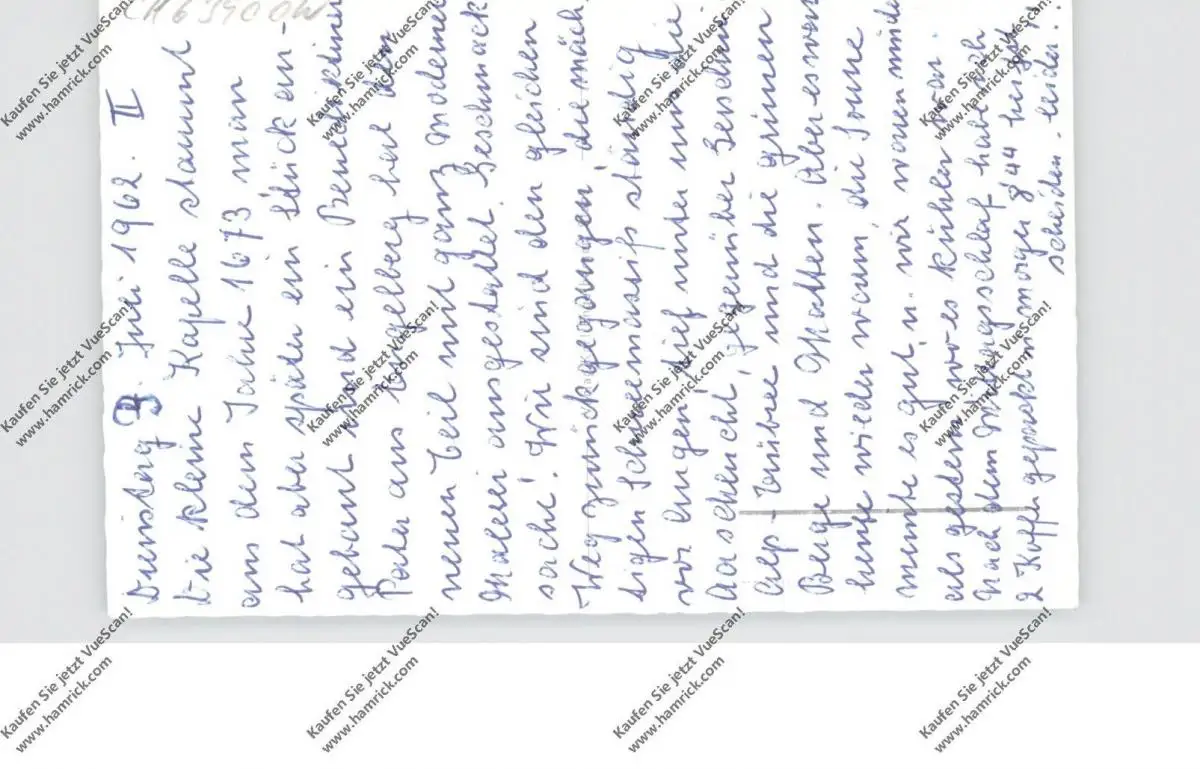 CH 6390 OW
Dienstag 3. Juli 1962. II
Die kleine Kapelle stammt
aus dem Jahre 1673 man
hat aber später ein Stück an-
gebaut und ein
Pater aus Engelberg hat den
neuen Teil mit ganz moderner
Malerei ausgestattet. Geschmack
sache! Wir sind den gleichen
Weg zurückgegangen, die mäch
tigen Schneemassifs ständig
vor Augen, tief unter uns die
Aaschlucht, gegenüber
Alp - und die grünen
Berge und Matten. Aber es war
heute wieder warm, die Sonne
meinte es gut u. wir waren müde
als gestern, wo es kühler war.
Nach dem Mittagsschlaf habe ich
2 Koffer gepackt morgen 8 44 heisst
scheiden. leider!
Kaufen Sie jetzt VueScan!
www.hamrick.com
Kaufen Sie jetzt VueScan!
www.hamrick.com
Kaufen Sie jetzt VueScan!
www.hamrick.com
Kaufen Sie jetzt VueScan!
www.hamrick.com
Kaufen Sie jetzt VueScan!
www.hamrick.com
Kaufen Sie jetzt VueScan!
www.hamrick.com
Kaufen Sie jetzt VueScan!
www.hamrick.com
Kaufen Sie jetzt VueScan!
www.hamrick.com
Kaufen Sie jetzt VueScan!
www.hamrick.com
Kaufen Sie jetzt VueScan!
www.hamrick.com
Kaufen Sie jetzt VueScan!
www.hamrick.com
Kaufen Sie jetzt VueScan!
www.hamrick.com